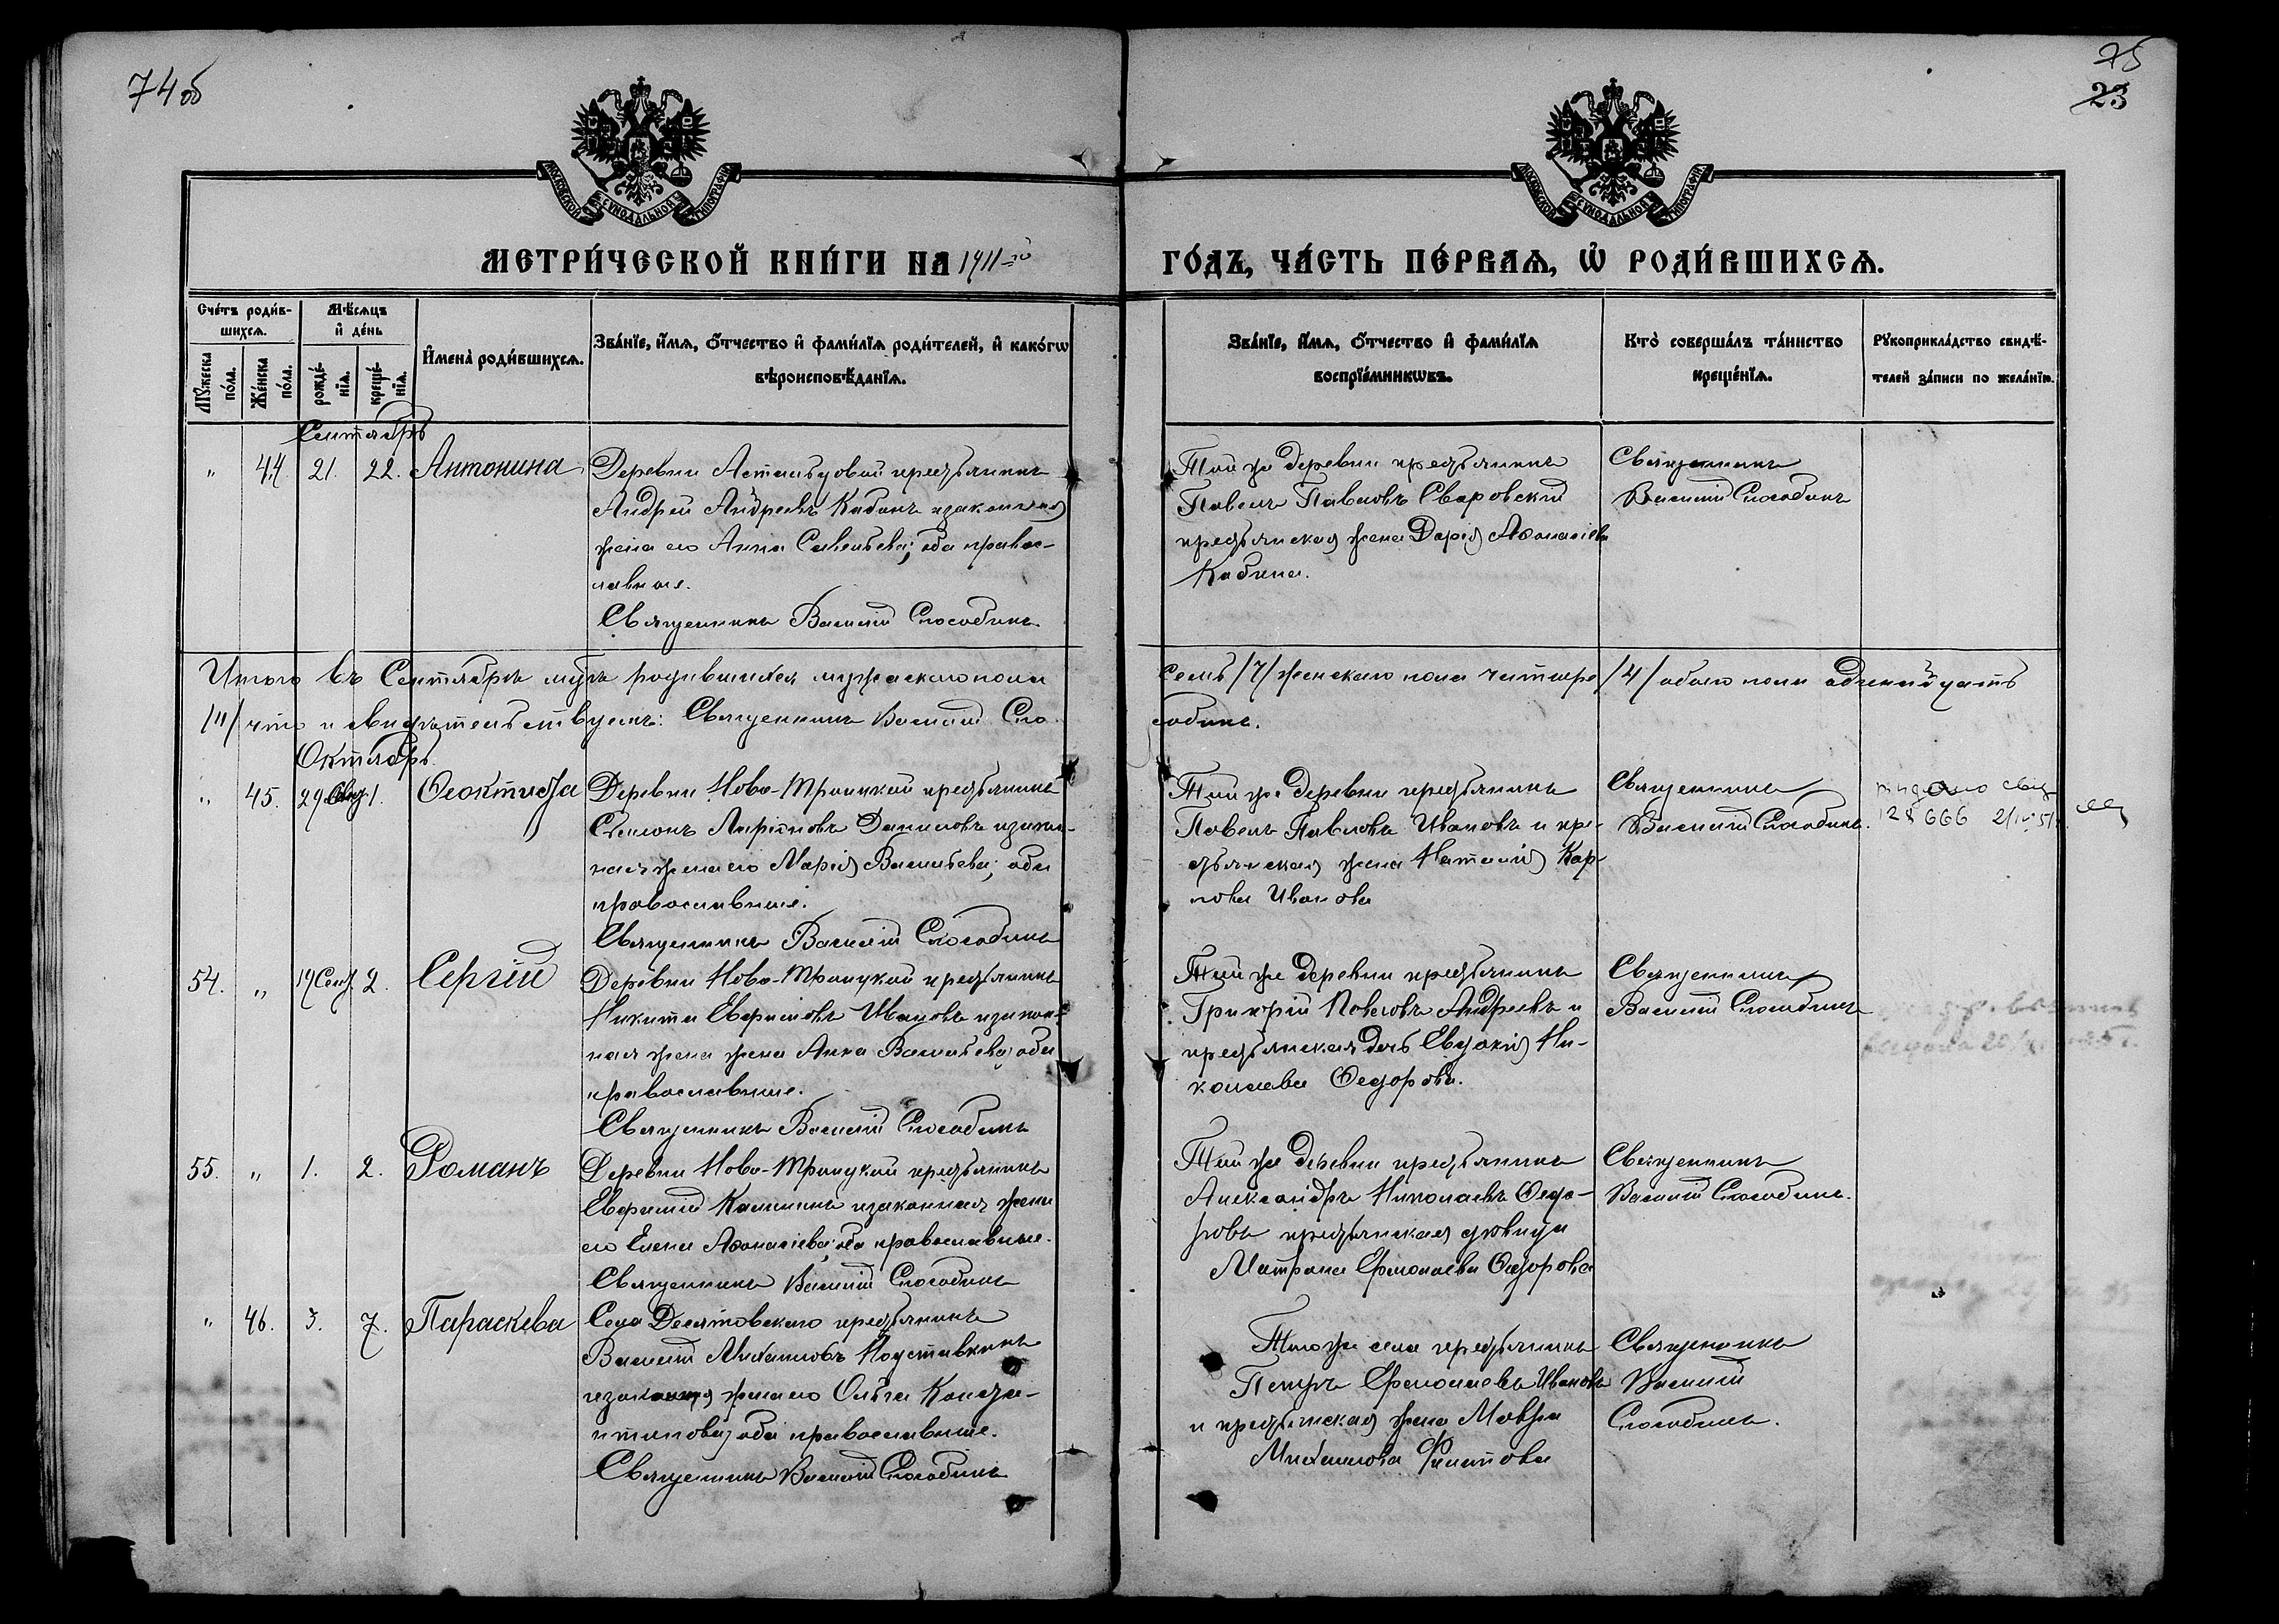 74 об
75
23
МОСКОВСКОЙ СѴНОДАЛЬНОЙ ТИПОГРАФІИ
МОСКОВСКОЙ СѴНОДАЛЬНОЙ ТИПОГРАФІИ
МЕТРИ́ЧЕСКОЙ КНИ́ГИ НА 1911-й
ГО́ДЪ, ЧА́СТЬ ПЕ́РВАѦ, Ѡ РОДИ́ВШИХСѦ.
Сче́тъ роди́в-
шихсѧ.
Мꙋ́жеска по́ла.
Же́нска по́ла.
Мѣ́сѧцъ
и҆ де́нь
рожде́-
нїѧ.
креще́-
нїѧ.
И҆мена̀ роди́вшихсѧ.
Зва́нїе, и҆́мѧ, ѻ҆́тчество и҆ фами́лїѧ роди́телей, и҆ како́гѡ
вѣроисповѣ́данїѧ.
Зва́нїе, и҆́мѧ, ѻ҆́тчество и҆ фами́лїѧ
воспрїе́мникѡвъ.
Кто̀ соверша́лъ та́инство
креще́нїѧ.
Рꙋкоприкла́дство свидѣ́-
телей за́писи по жела́нїю.
Сентябрь
" 44. 21. 22. Антонина
Деревни крестьянинъ
Андрей Андреевъ Кабинъ и законная
жена его Анна Савельева; оба правос-
лавные.
Священникъ Василій Способинъ
Той же деревни крестьянинъ
Павелъ Павловъ Сваровскій
крестьянская жена Дарія Аѳанасіева
Кабина.
Священникъ
Василій Способинъ
Итого въ Сентябрѣ мцѣ родившихся мужескаго пола
семь /7/ женскаго пола четыре /4/ обоего пола одиннадцать
/11/ что и свидѣтельствуемъ: Священникъ Василій Спо-
собинъ.
Октябрь.
" 45. 29 Сент. 1. Ѳеоктиста
Деревни Ново-Троицкой крестьянинъ
Даниловъ и закон-
ная жена его Марія Васильева; оба
православные.
Священникъ Василій Способинъ
Той же деревни крестьянинъ
Павелъ Павловъ Ивановъ и кре-
стьянская жена Наталія Кар-
пова Иванова
Священникъ
Василій Способинъ.
выдано свид
128666
54. " 19 Сент. 2. Сергій
Деревни Ново-Троицкой крестьянинъ
Никита Ефримовъ Ивановъ и закон-
ная жена жена Анна Васильева; оба
православные.
Священникъ Василій Способинъ
Той же деревни крестьянинъ
Григорій Павловъ Андреевъ и
крестьянская дочь Евдокія Ни-
колаева Ѳедорова.
Священникъ
Василій Способинъ
55. " 1. 2. Романъ
Деревни Ново-Троицкой крестьянинъ
Ефримій Калининъ и законная жена
его Елена Аѳанасіева; оба православные.
Священникъ Василій Способинъ
Той же деревни крестьянинъ
Александръ Николаевъ Ѳедо-
ровъ крестьянская дѣвица
Матрона Ермолаева Ѳедорова
Священникъ
Василій Способинъ.
" 46. 3. 7. Параскева
Села Десятовскаго крестьянинъ
Василій Михаиловъ
и законная жена его Ольга Конста-
нтинова; оба православные.
Священникъ Василій Способинъ
Того же села крестьянинъ
Петръ Ермолаевъ Ивановъ
и крестьянская жена Мавра
Михаилова Филатова
Священникъ
Василій
Способинъ.